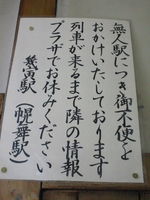 無人駅につき御不便を
おかけいたしております
列車が来るまで隣の情報
プラザでお休みください
幾寅駅(幌舞駅)